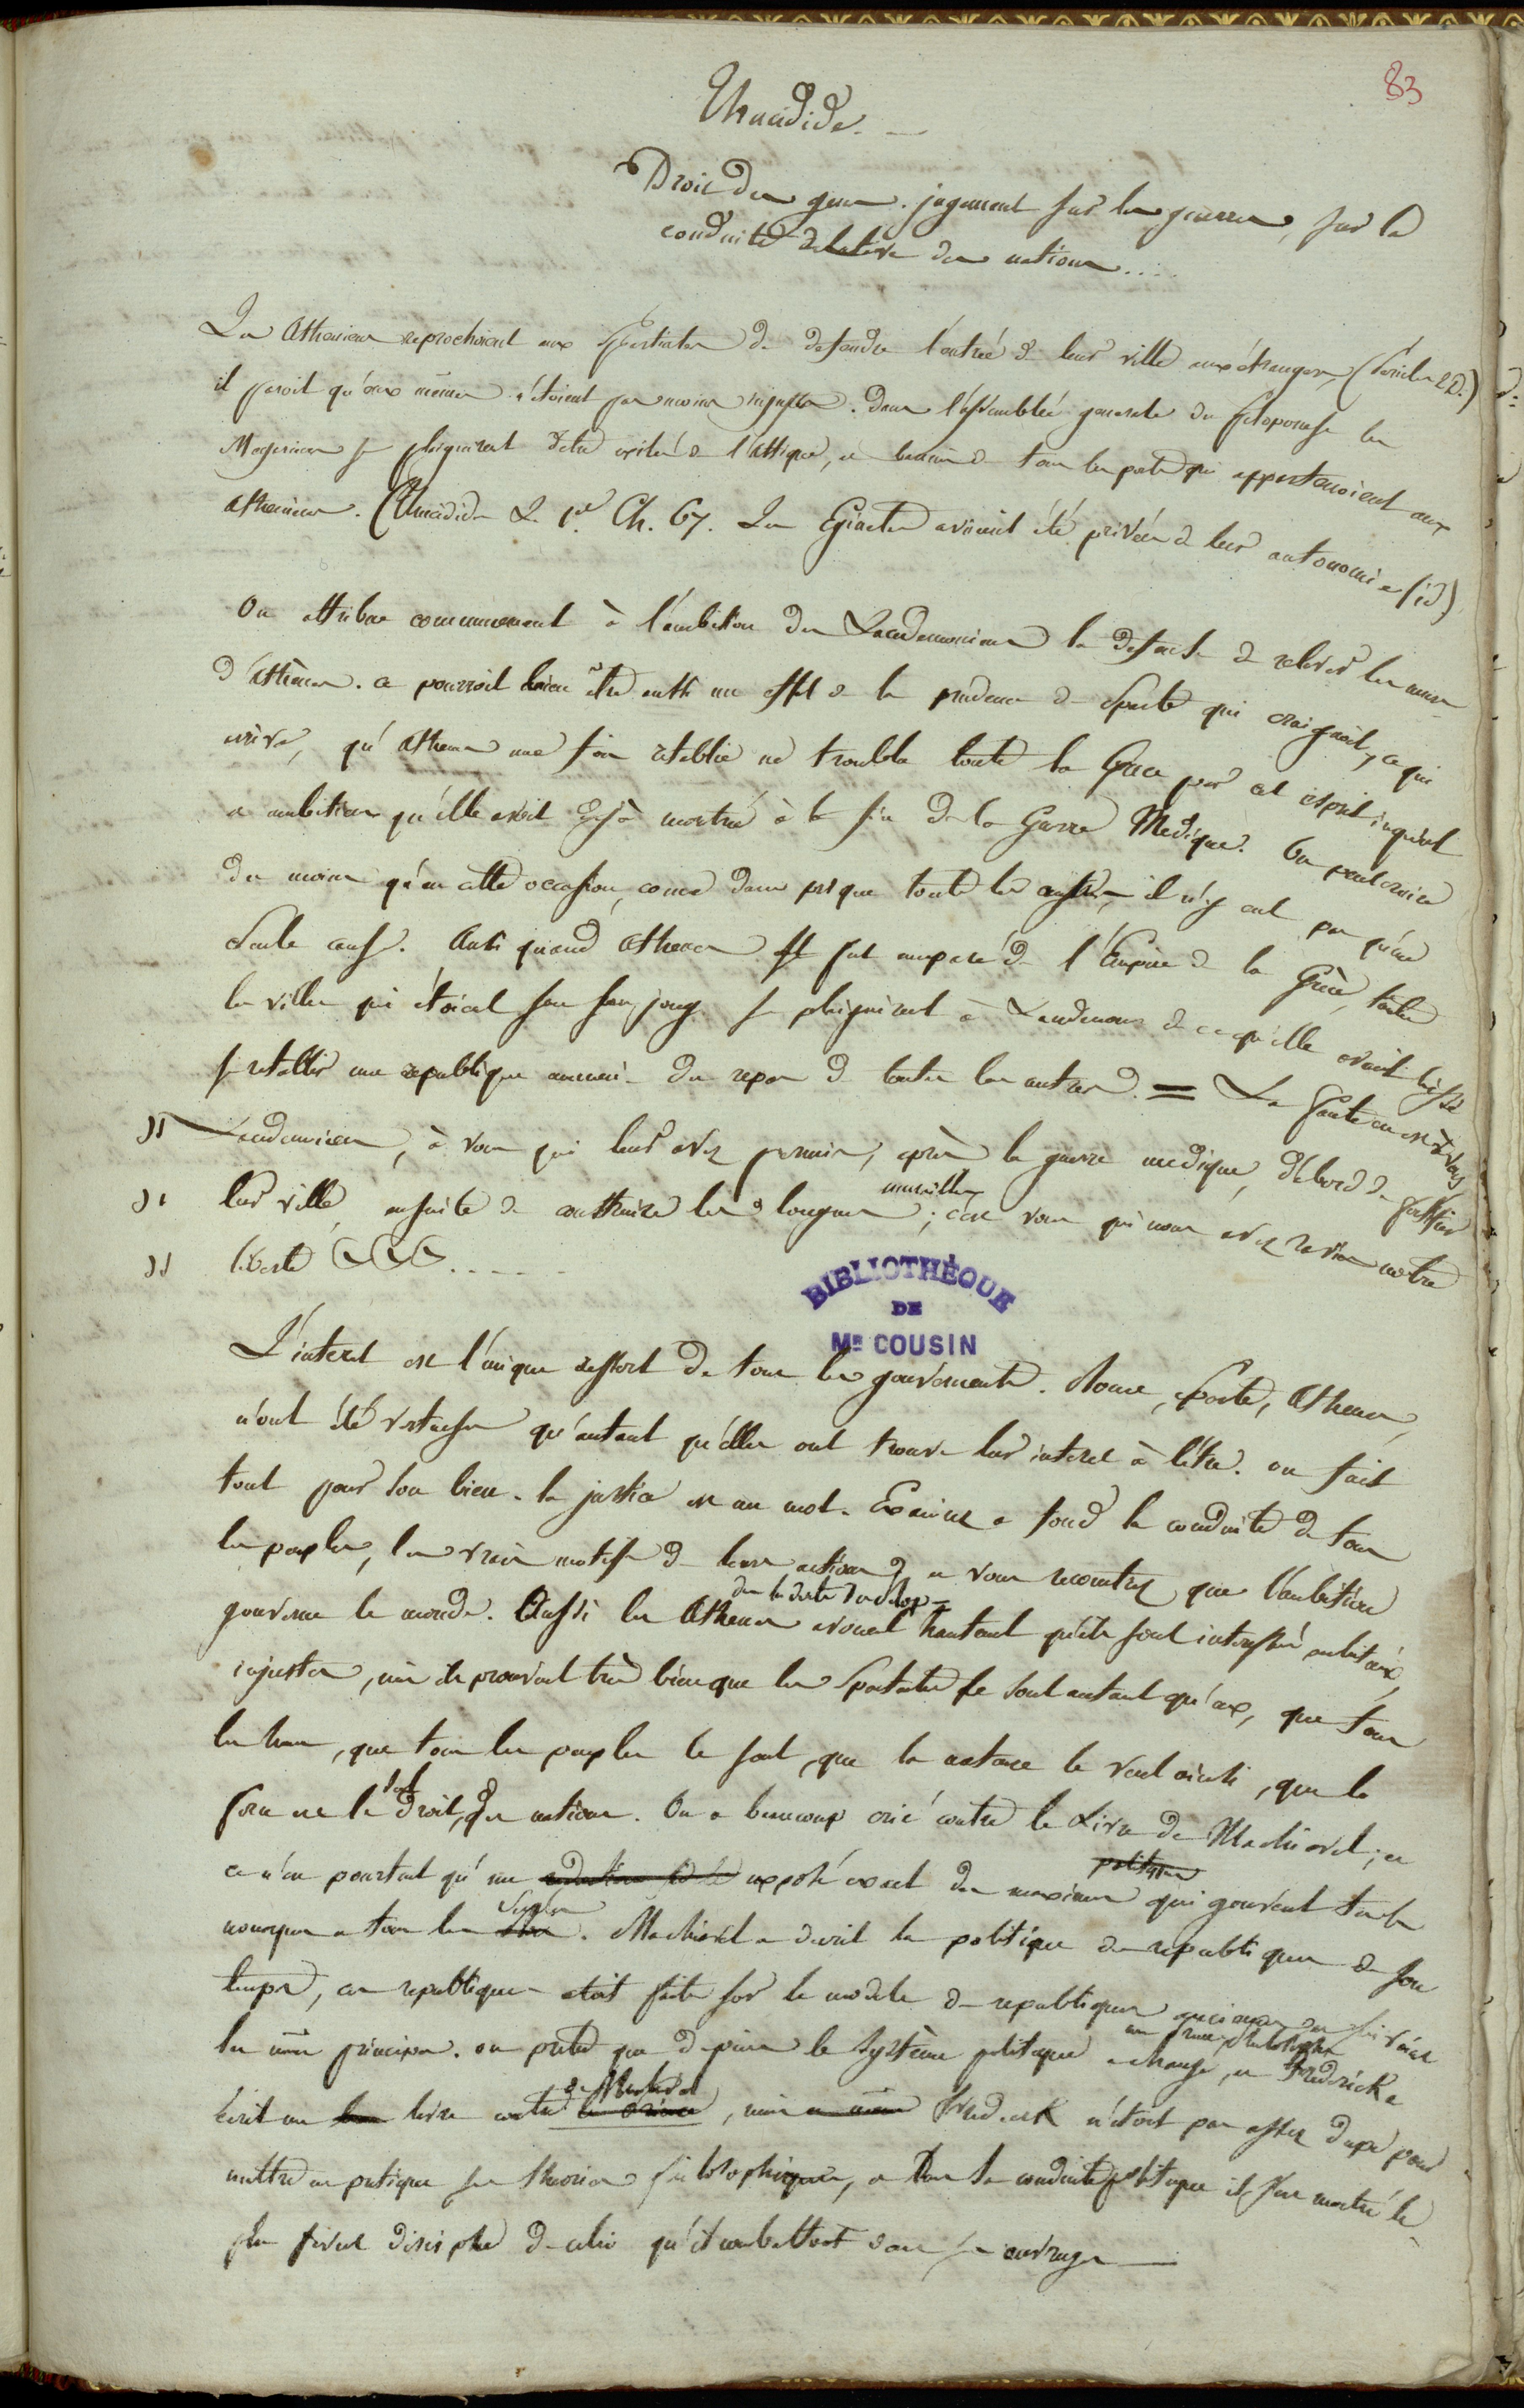 83
Thucidide. —
Droit des gens. jugement sur les guerres, sur la
conduite relative des nations....
Les Atheniens reprochoient aux Spartiates de defendre l'entrée de leur ville aux étrangers, (Pericles 2D.)
il paroit qu'eux mêmes n'étoient pas moins injustes. Dans l'assemblée generale du Peloponese les
Megariens se plaignirent d'etre exilés de l'attique, et bannis de tous les ports qui appartenoient aux
Atheniens. (Thucidide L. 1er Ch. 67. Les Eginetes avoient été privés de leur autonomie (id)
On attribue communement à l'ambition des Lacedemoniens la defense de relever les murs
d'Athènes. ce pourroit bien être aussi un effet de la prudence de Sparte qui craignoit, ce qui
arriva, qu'Athenes une fois retablie ne troubla toute la Grece par cet esprit inquiet
et ambitieux qu'elle avoit deja montré à la fin de la Guerre Medique. On peut croire
du moins qu'en cette occasion, come dans presque toutes les autres, il n'y eut pas qu'une
seule cause. Aussi quand Athenes se fut emparé de l'Empire de la Grèce, toutes
les villes qui étoient sous son joug se plaignirent à Lacedemone de ce qu'elle avoit laissé
se retablir une republique ennemie du repos de toutes les autres. = La faute en est à vous,
" Lacedemoniens, à vous qui leur avez permis, après la guerre medique, d'abord de fortifier
" leur ville, ensuite de construire les longues murailles; c'est vous qui nous avez ravi notre
" liberté &&&.....
BIBLIOTHÈQUE
DE
MR COUSIN
L'interet est l'unique ressort de tous les gouvernements. Rome, Sparte, Athenes,
n'ont été vertueuses qu'autant qu'elles ont trouvé leur interet à l'être. on fait
tout pour son bien. la justice est un mot. Examinez a fond la conduite de tous
les peuples, les vrais motifs de leurs actions, et vous reconnoitrez que l'ambition
gouverne le monde. Aussi les Atheniens avouent hautement qu'ils sont interessés ambitieux,
injustes, mais ils prouvent très bien que les Spartiates le sont autant qu'eux, que tous
les homes, que tous les peuples le sont, que la nature le veut ainsi, que la
force est le seul droit des nations. On a beaucoup crié contre le Livre de Machiavel; ce
n'est pourtant qu'un exposé exact des maximes politiques qui gouvernent
a tous les siècles. Machiavel a decrit la politique des republiques de son
temps, ces republiques etoit faites sur le modele des republiques anciennes
les mêmes principes. on pretend que depuis le Système politique a changé, et Frederick a
écrit un livre contre Machiavel, mais Frederick n'étoit pas assez dupe pour
mettre en pratique ses theories philosophiques, et dans sa conduite politique il s'est montré le
plus fidel disciple de celui qu'il combattoit dans ses ouvrages —